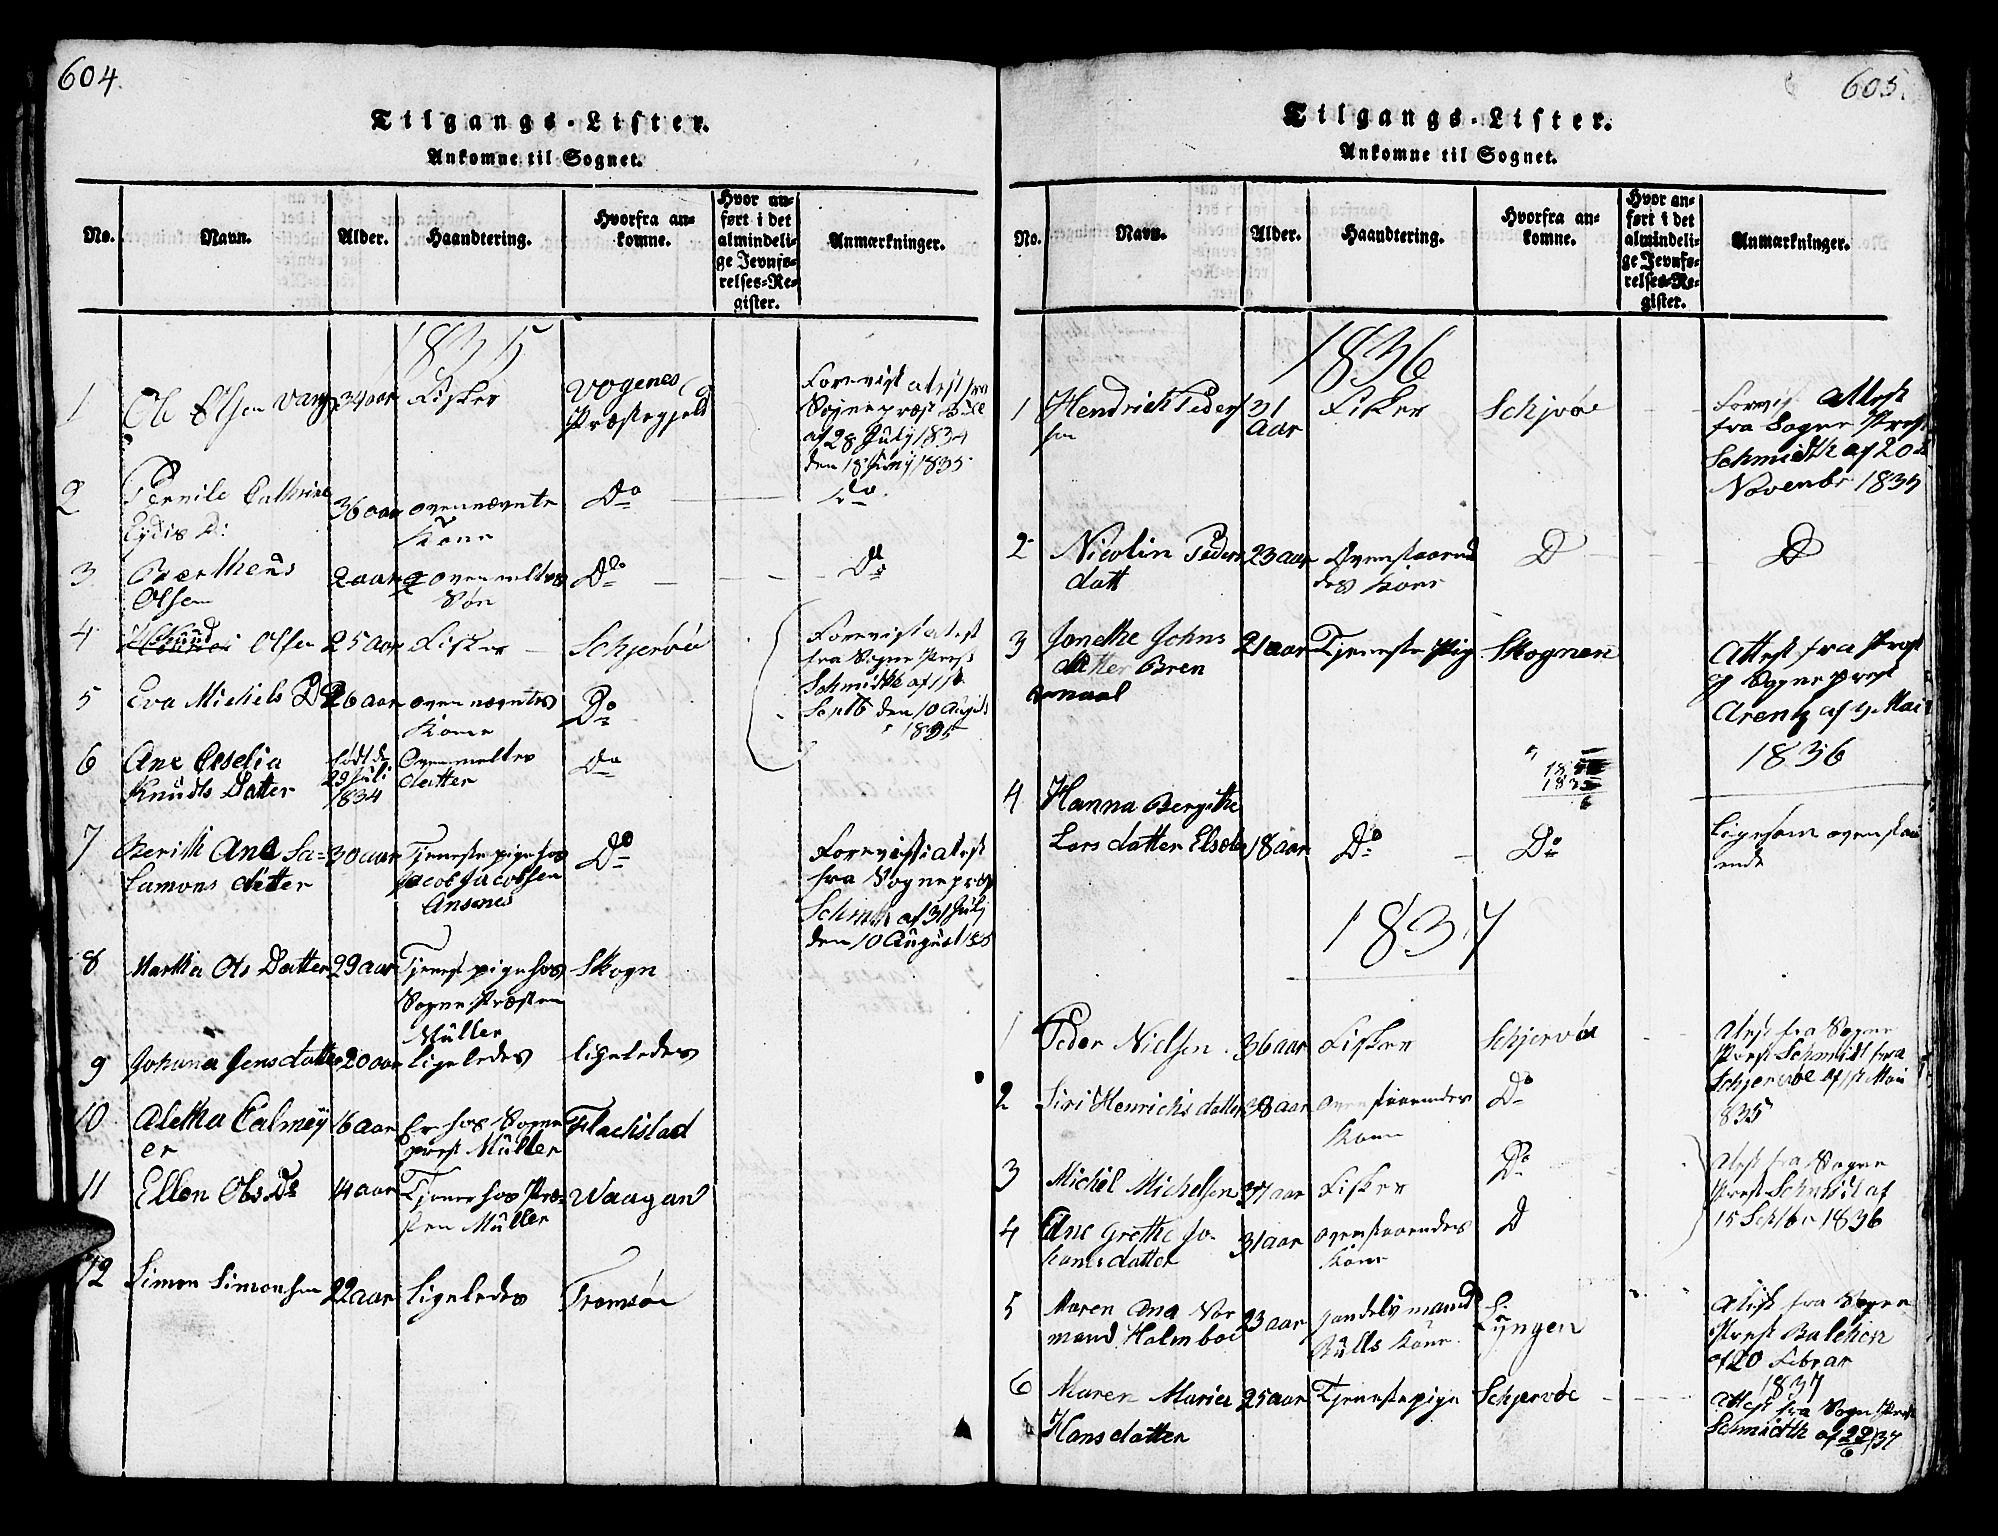 604.
Tilgangs-Lister.
Ankomne til Sognet.
No. Navn. Alder. Haandtering. Hvorfra an-
komne. Hvor an-
ført i det
almindeli-
ge Jevnfø-
relses-Re-
gister. Anmærkninger.
1835
1 Ole Olsen Vang 34 aar Fisker Vogenes
Præstegjeld Forevist atest fra
Sognepræst
af 28 July 1834
den 18 Juny 1835
2 Pernile Cathrine
D: 36 aar ovennævnte
Kone Do Do
3 Olsen 2 aar ovenmeltes
Søn Do Do
4 Knud Olsen 25 aar Fisker Schjervöe Forevist atest
fra Sogne Prest
Schmidth af
Septb den 10 August
1835
5 Eva Michels D 26 aar ovennævntes
Kone Do
6 Ane Eselia
Knudts Datter født d
29 Juli
1834 Ovenmeltes
datter Do
7 Berith Ane Sa-
lamons datter 30 aar Tjenestepige hos
Jacob Jacobsen
Ansnes Do Forevist atest
fra Sogneprest
Schmith af 31 July
den 10 August 1835
8 Martha Ols Datter 29 aar Tjenestpige hos
Sogne Præsten
Müller Skogn
9 Johana Jensdatter 20 aar ligeledes ligeledes
10 Aletha Calmey
er 16 aar Er hos Sogne
prest Müller Flachstad
11 Ellen Ols Dr 14 aar Tjener hos Præ-
sten Müller Waagan
12 Simon Simonsen 22 aar ligeledes Tromsöe
605.
Tilgangs-Lister.
Ankomne til Sognet.
No. Navn. Alder. Haandtering. Hvorfra an-
komne. Hvor an-
ført i det
almindeli-
ge Jevnfø-
relses-Re-
gister. Anmærkninger.
1836
1 Hendrich Peder
sen 31
aar Fisker Schjvöe Forevist Attest
fra Sogne Prest
Schmidth af 20de
Novenbr 1835
2 Nicolin Peders
datt 23 aar Ovenstaaend
des Kone D D
3 Jonethe Johns
datter Bren
naal 21 aar Tjeneste Pig Skognen Attest fra Prost
og Sogneprest
Arentz af 9 Mai
1836
4 Hanna Bergithe
Lars datter 18 aar Do Do ligesom ovenstaa
ende
1837
1 Peder Nielsen 36 aar Fisker Schjervöe Atest fra Sogne
Prest Schmidt fra
Schjervöe af Mai
835
2 Siri Henrichs datter 38 aar ovenstaaendes
Kone Do
3 Michel Michelsen 37 aar Fisker Do Atest fra Sogne
Prest Schmidt af
15 Septbr 1836
4 Ane Grethe Jo-
hansdatter 31 aar ovenstaaendes
Kone D
5 Maren Ana Nor
mand Holmboe 23 aar Handelsmand
Kone Lyngen Atest fra Sogne
Prest Balchen
af 20 Febrar
1837
6 Maren Maria
Hansdatter 25 aar Tjenestepige Schjervöe Attest fra Sogne Prest
Schmidth af 29/6 37